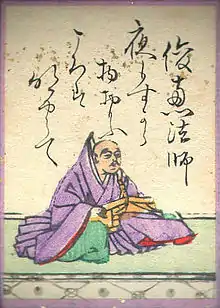 俊惠法師
夜もすから
物おもふ
ころは
明やらて